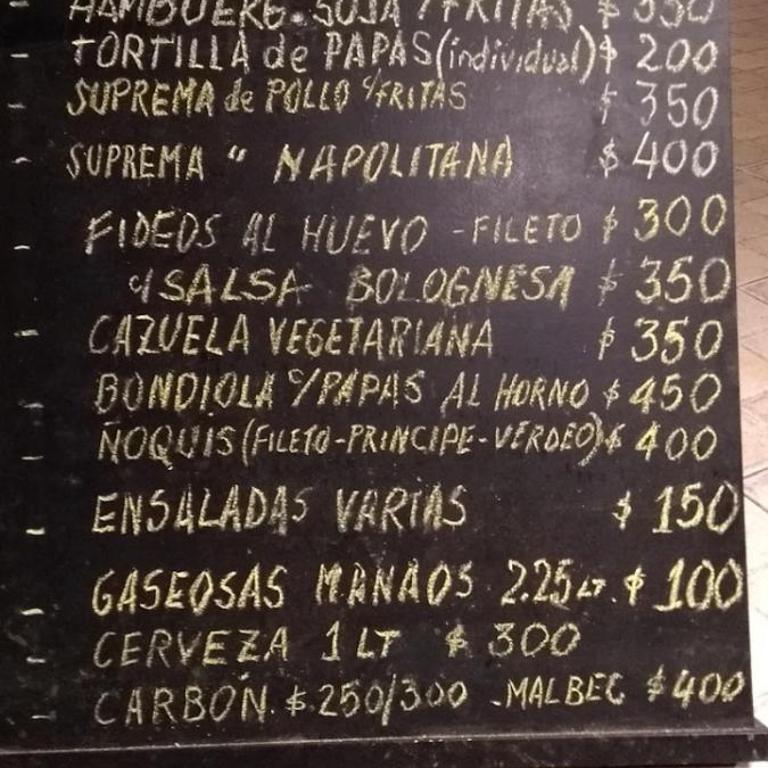 - HAMBUERG. SOJA /FRITAS $ 350
- TORTILLA de PAPAS (individual) $ 200
- SUPREMA de POLLO c/FRITAS $ 350
- SUPREMA " NAPOLITANA $ 400
- FIDEOS AL HUEVO - FILETO $ 300
c/SALSA BOLOGNESA $ 350
- CAZUELA VEGETARIANA $ 350
- BONDIOLA c/PAPAS AL HORNO $ 450
- ÑOQUIS (FILETO-PRINCIPE-VERDEO) $ 400
- ENSALADAS VARIAS $ 150
- GASEOSAS MANAOS 2.25 LT. $ 100
- CERVEZA 1 LT $ 300
- CARBON. $.250/300 -MALBEC $ 400